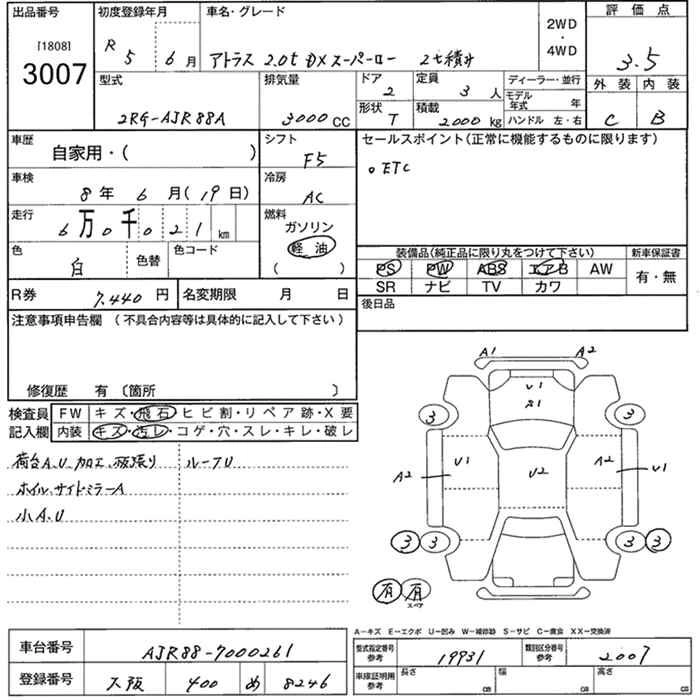 出品番号
[1808]
3007
初度登録年月
R 5 6 月
車名・グレード
アトラス 2.0t DXスーパーロー 2t積み
2WD
・
4WD
評価点
3.5
外装 内装
C B
型式
2RG-AJR88A
排気量
3000 CC
ドア
2
形状
T
定員
3 人
積載
2000 kg
ディーラー・並行
モデル年式 年
ハンドル 左・右
車歴
自家用・( )
シフト
F5
セールスポイント(正常に機能するものに限ります)
。ETC
車検
8 年 6 月(19日)
冷房
AC
走行
6万0千021 km
燃料
ガソリン
軽油
( )
色
白
色替
色コード
装備品(純正品に限り丸をつけて下さい)
新車保証書
PS PW ABS エアB AW
有・無
SR ナビ TV カワ
R券
7.440 円
名変期限 月 日
後日品
注意事項申告欄 (不具合内容等は具体的に記入して下さい)
修復歴 有 〔箇所 〕
検査員記入欄
FW キズ・飛石・ヒビ割・リペア跡・X要
内装 キズ・汚レ・コゲ・穴・スレ・キレ・破レ
荷台A.U.加工、板張り ルーフU
ホイル、サイドミラーA
小A.U
A1 A2
U1
A1
3 3
A2 U1 U2 A2 U1
3 3 3 3
有 有
スペア
A-キズ E-エクボ U-凹み W-補修跡 S-サビ C-腐食 XX-交換済
車台番号
AJR88-7000261
登録番号
大阪 400 め 8246
型式指定番号
参考
19931
類別区分番号
参考
2007
車庫証明用
参考
長さ cm 幅 cm 高さ cm